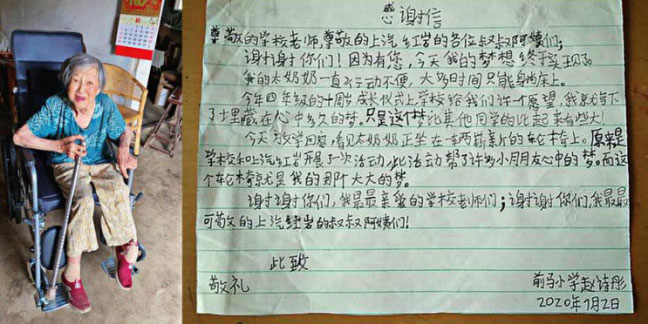 感谢信
尊敬的学校老师,尊敬的上汽红岩的各位叔叔阿姨们:
谢谢你们!因为有您,今天我的梦想终于实现了。
我的太奶奶一直行动不便,大多时间只能身卧床上。
今年四年级的十周岁成长仪式上学校给我们许一个愿望,我就写下
了埋藏在心中多久的梦。只是这个梦比其他同学的比起来有些大!
今天放学回家,看见太奶奶正坐在一车两崭新的轮椅上。原来是
学校和上汽红岩开展了一次活动,此活动帮了许多小朋友心中的梦。而这
个轮椅就是我的那个大大的梦。
谢谢你们,我最最亲爱的学校老师们;谢谢你们,我最最
可敬的上汽红岩的叔叔阿姨们!
此致
敬礼
前马小学赵诗彤
2020年7月2日